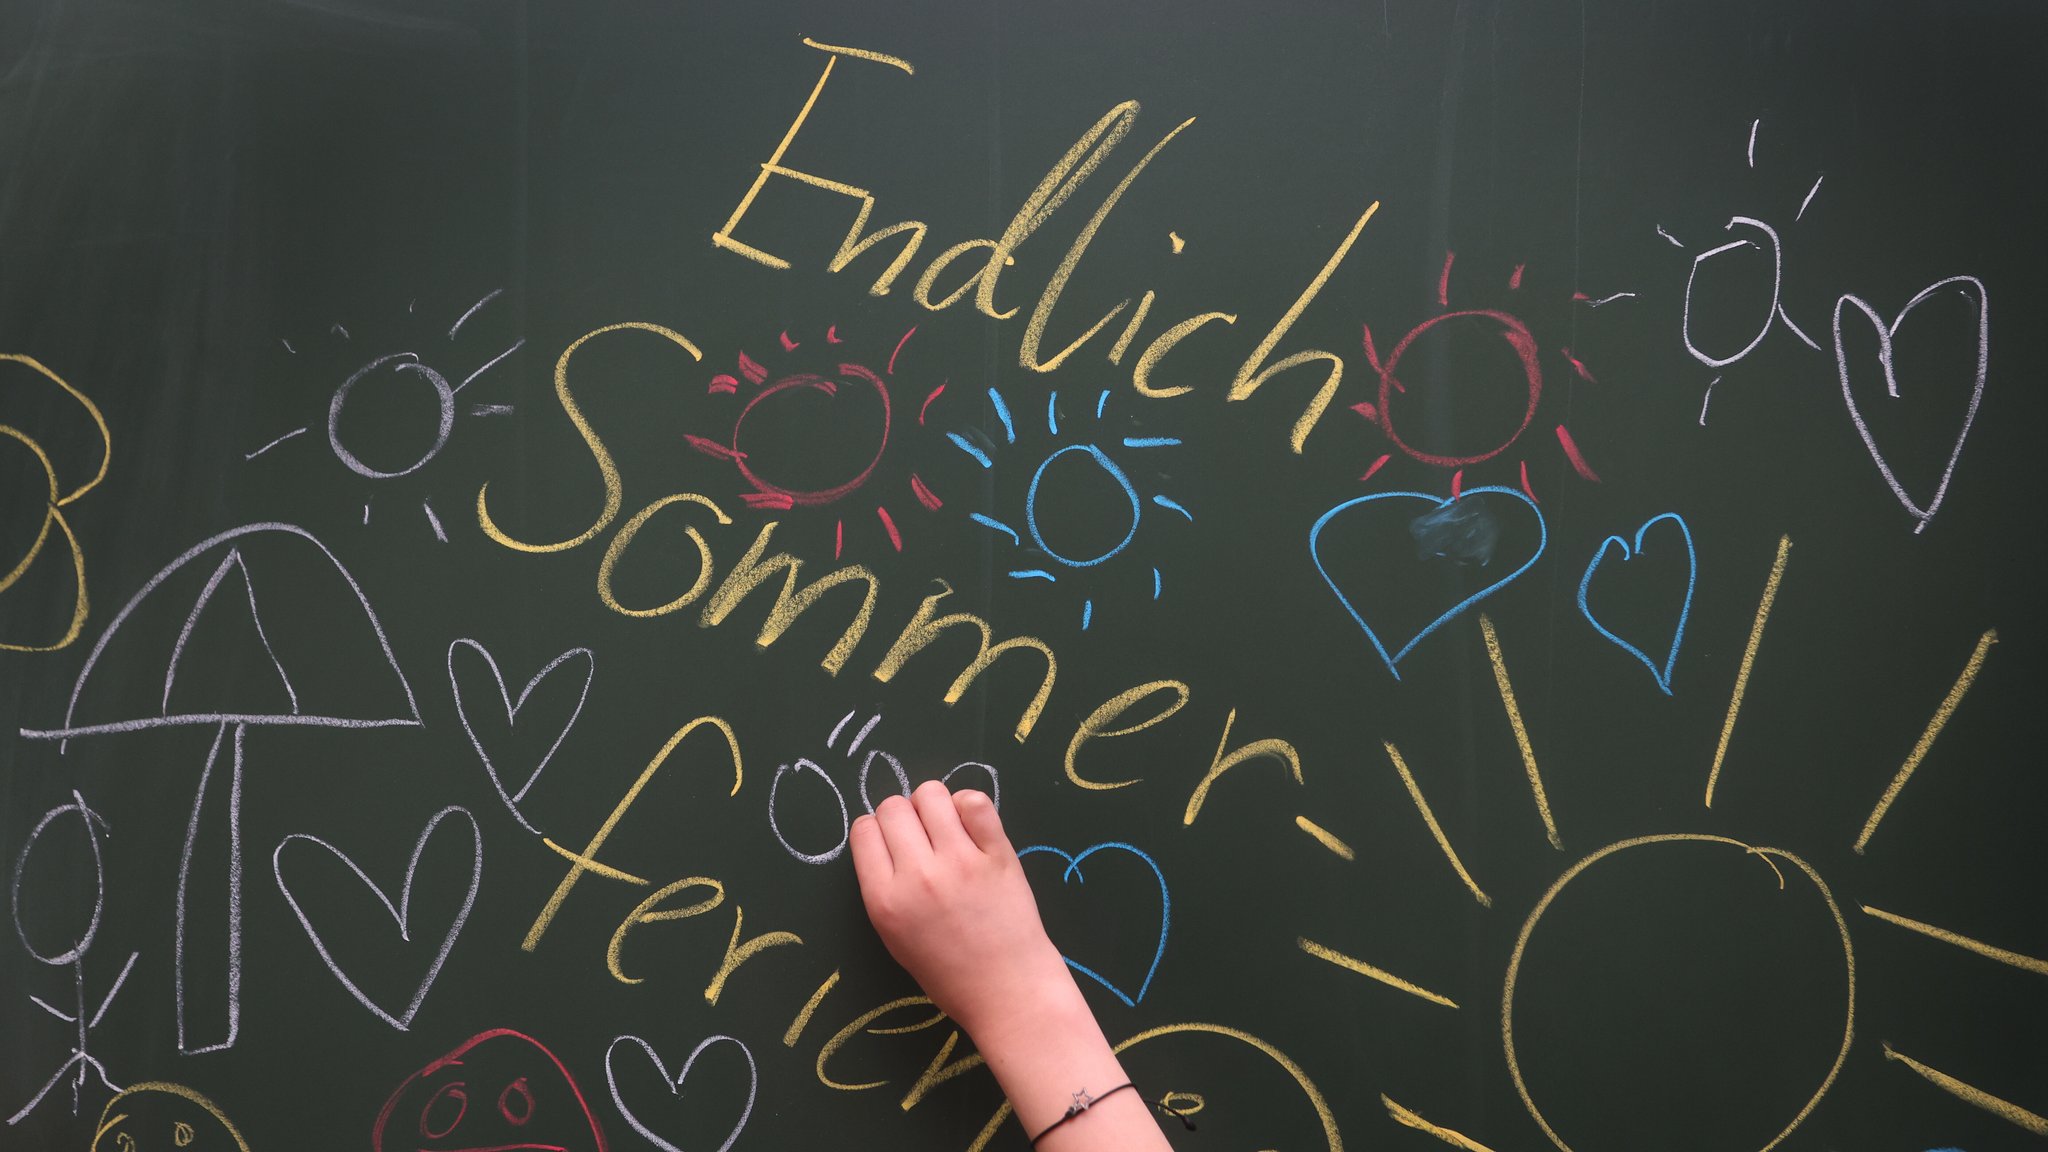 Endlich
Sommer-
ferien